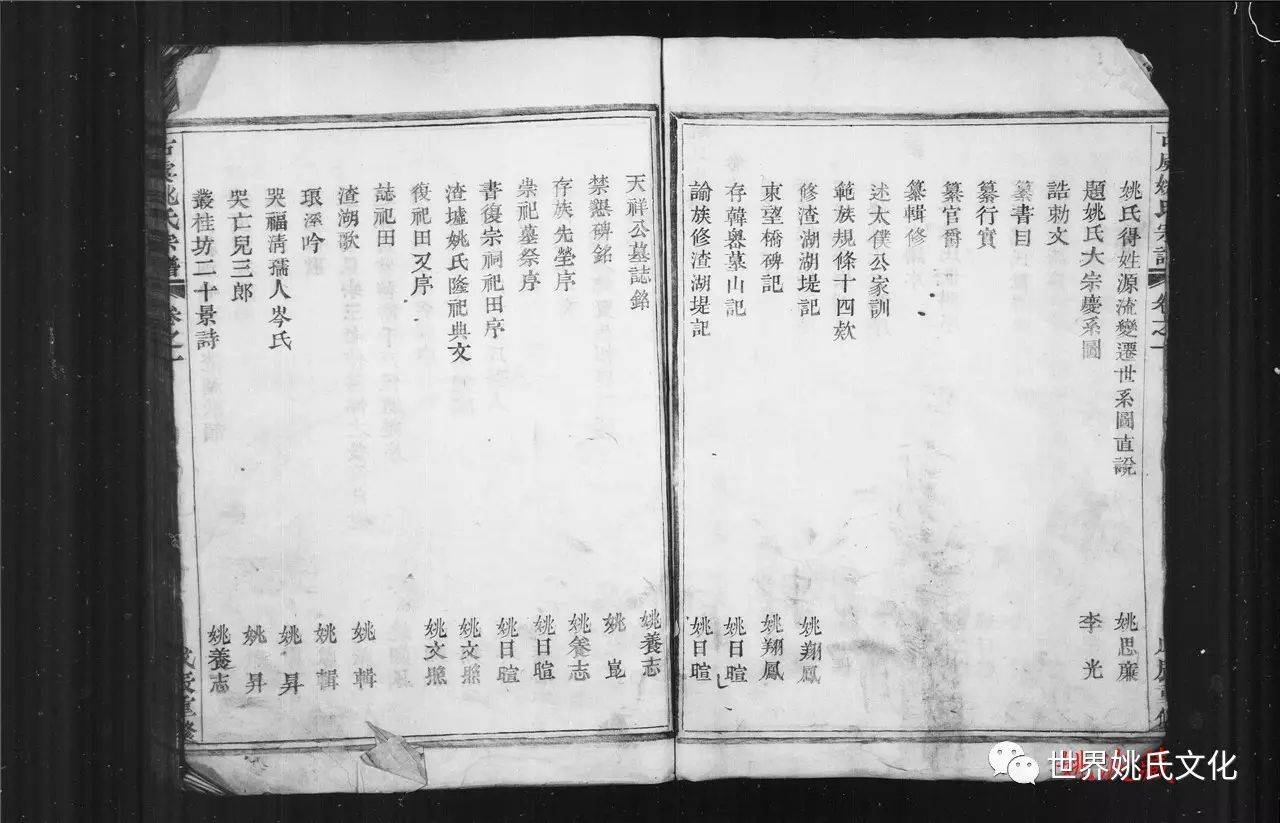 姚氏得姓源流變遷世系圖直說 姚思廉
題姚氏大宗慶系圖 李光
誥勅文
纂書目
纂行實
纂官爵
纂輯修
述太僕公家訓
範族規條十四欵
修渣湖湖堤記 姚翔鳳
東望橋碑記 姚翔鳳
存韓墓山記 姚日暄
諭族修渣湖堤記 姚日暄
天祥公墓誌銘 姚養志
禁懇碑銘 姚崑
存族先塋序 姚養志
祟祀墓祭序 姚日暄
書復宗祠祀田序 姚日暄
渣墟姚氏隆祀典文 姚文熈
復祀田又序 姚文熈
誌祀田
渣湖歌 姚輯
琅溪吟 姚輯
哭福清孺人岑氏 姚昇
哭亡兒三郎 姚昇
叢桂坊二十景詩 姚養志
姚氏宗譜 卷之一
戊辰重修
世界姚氏文化